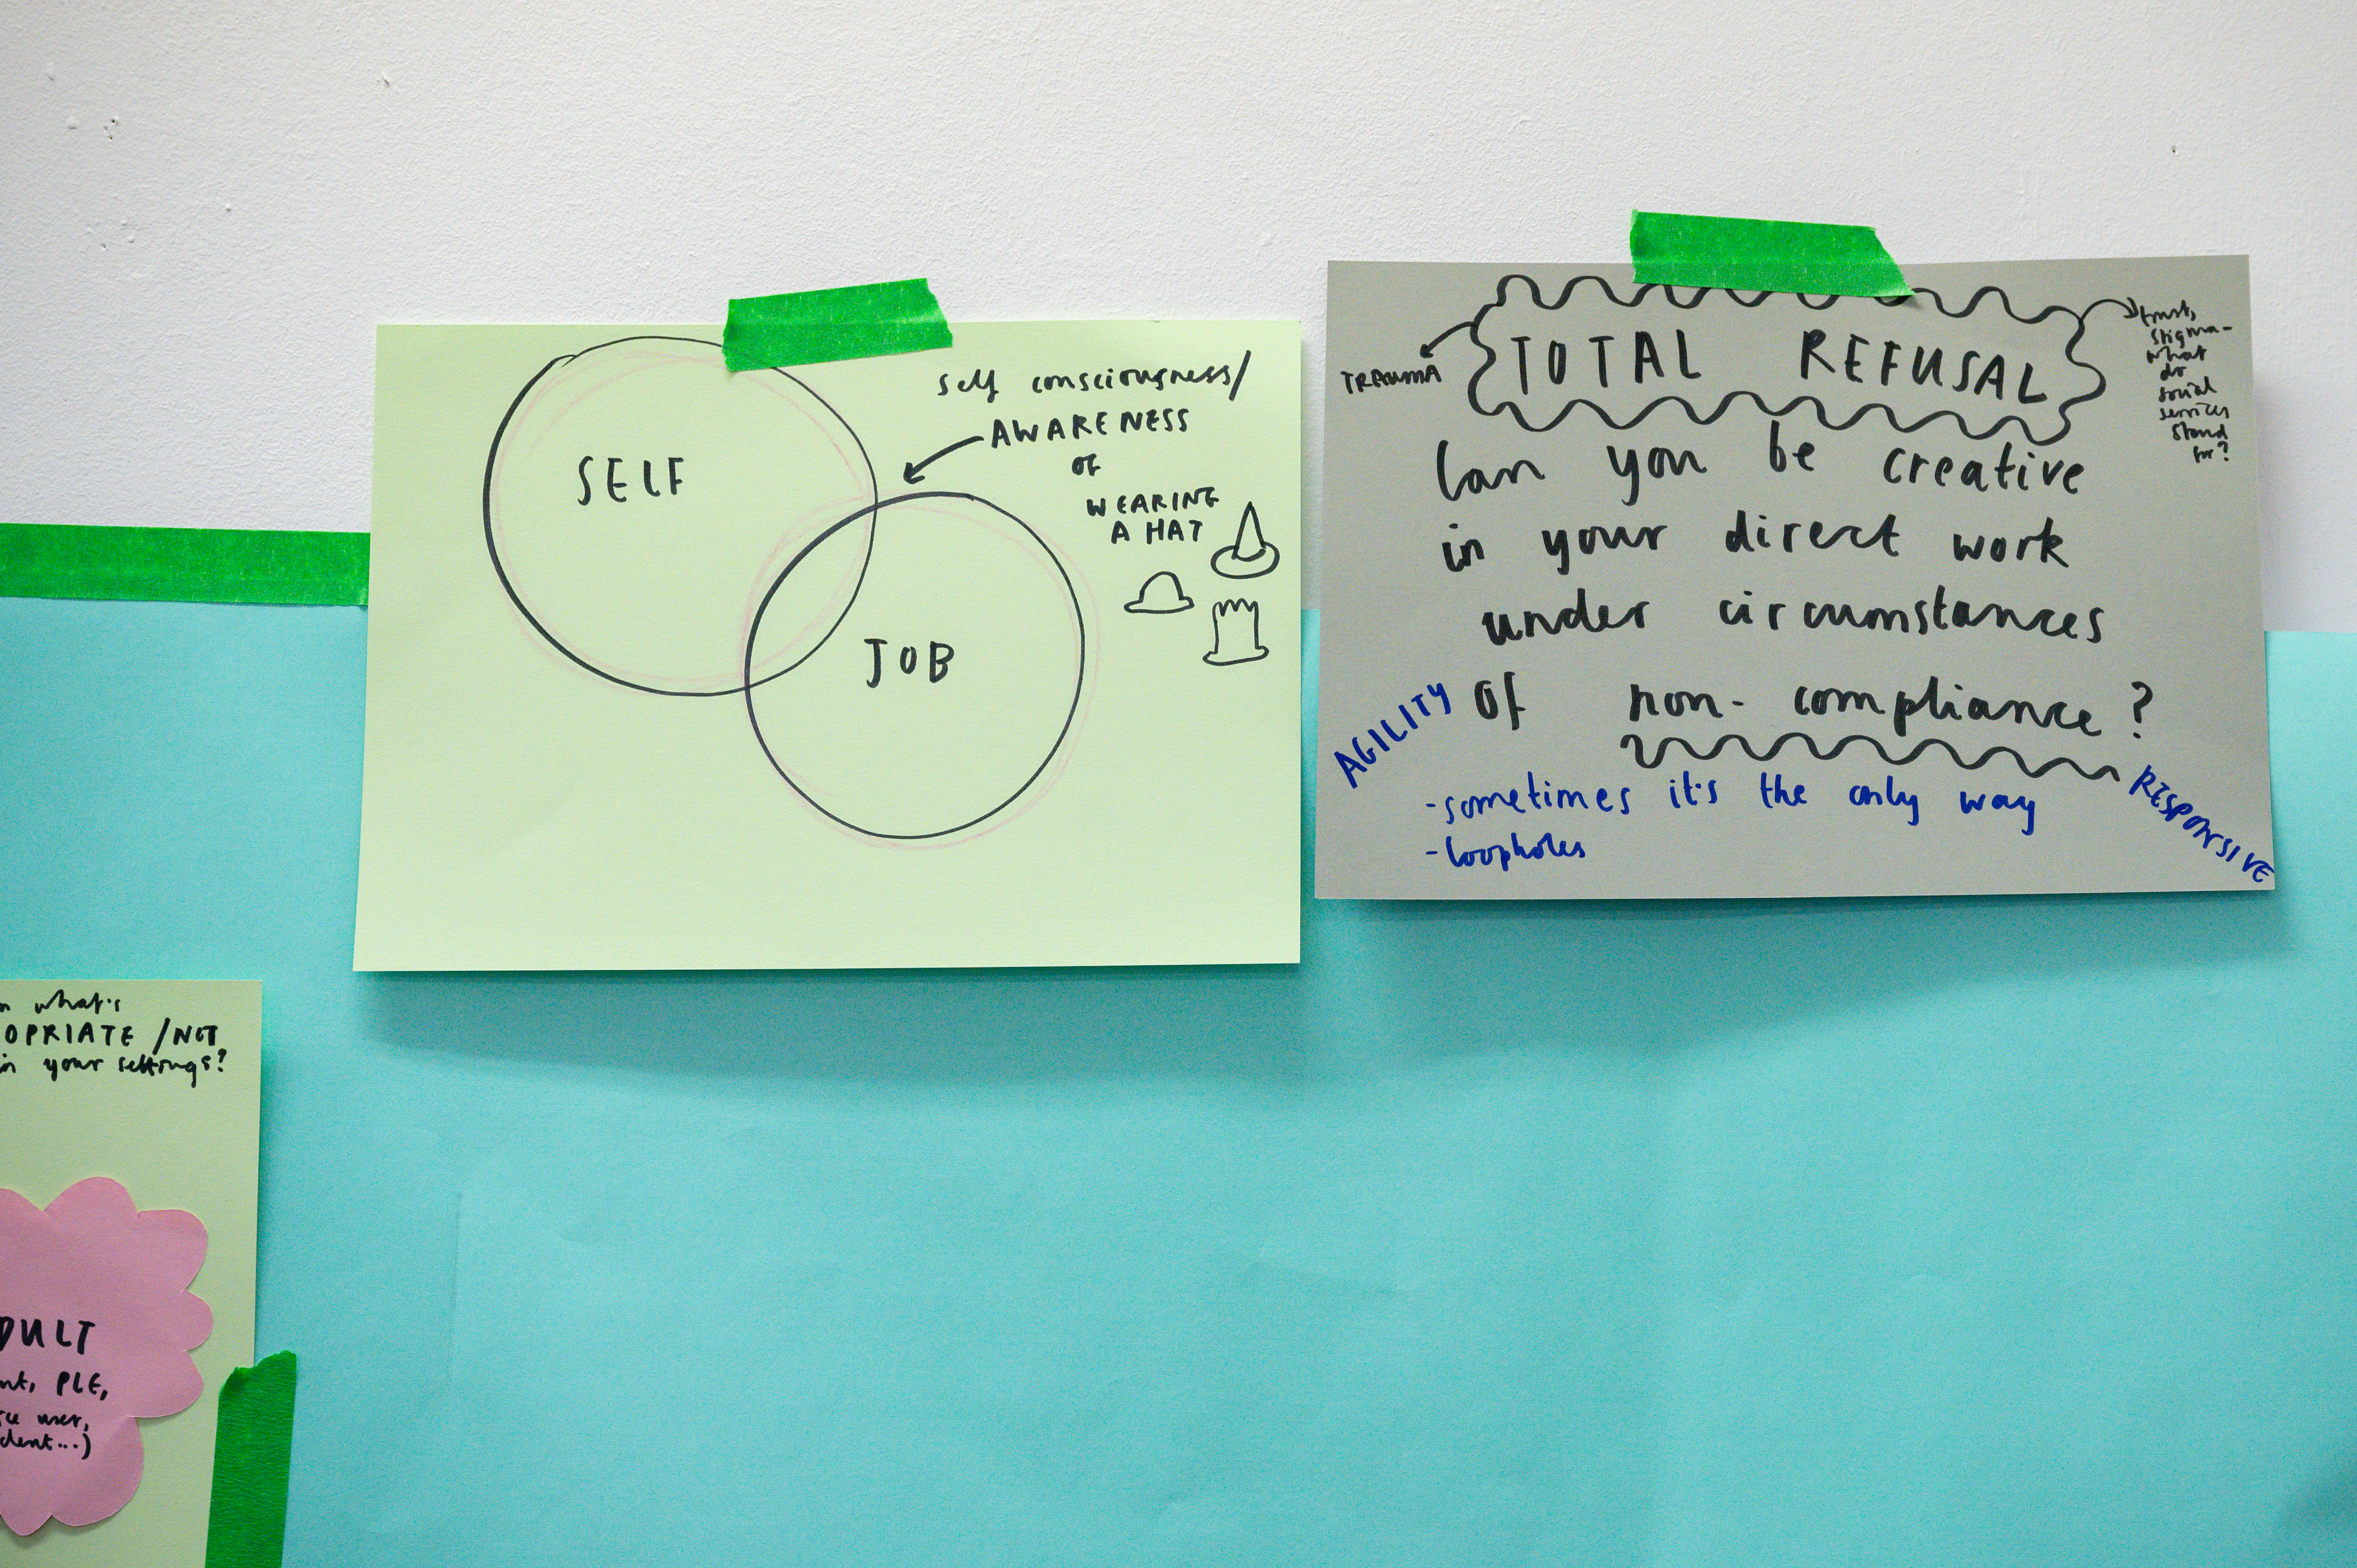 SELF
JOB
self consciousness/
AWARENESS
OF
WEARING
A HAT
TOTAL REFUSAL
TRAUMA
trust,
stigma-
what
do
social
services
stand
for?
Can you be creative
in your direct work
under circumstances
of non-compliance?
AGILITY
-sometimes it's the only way
-loopholes
RESPONSIVE
what's
OPRIATE /NOT
in your settings?
DULT
nt, PLE,
ice user,
dent...)